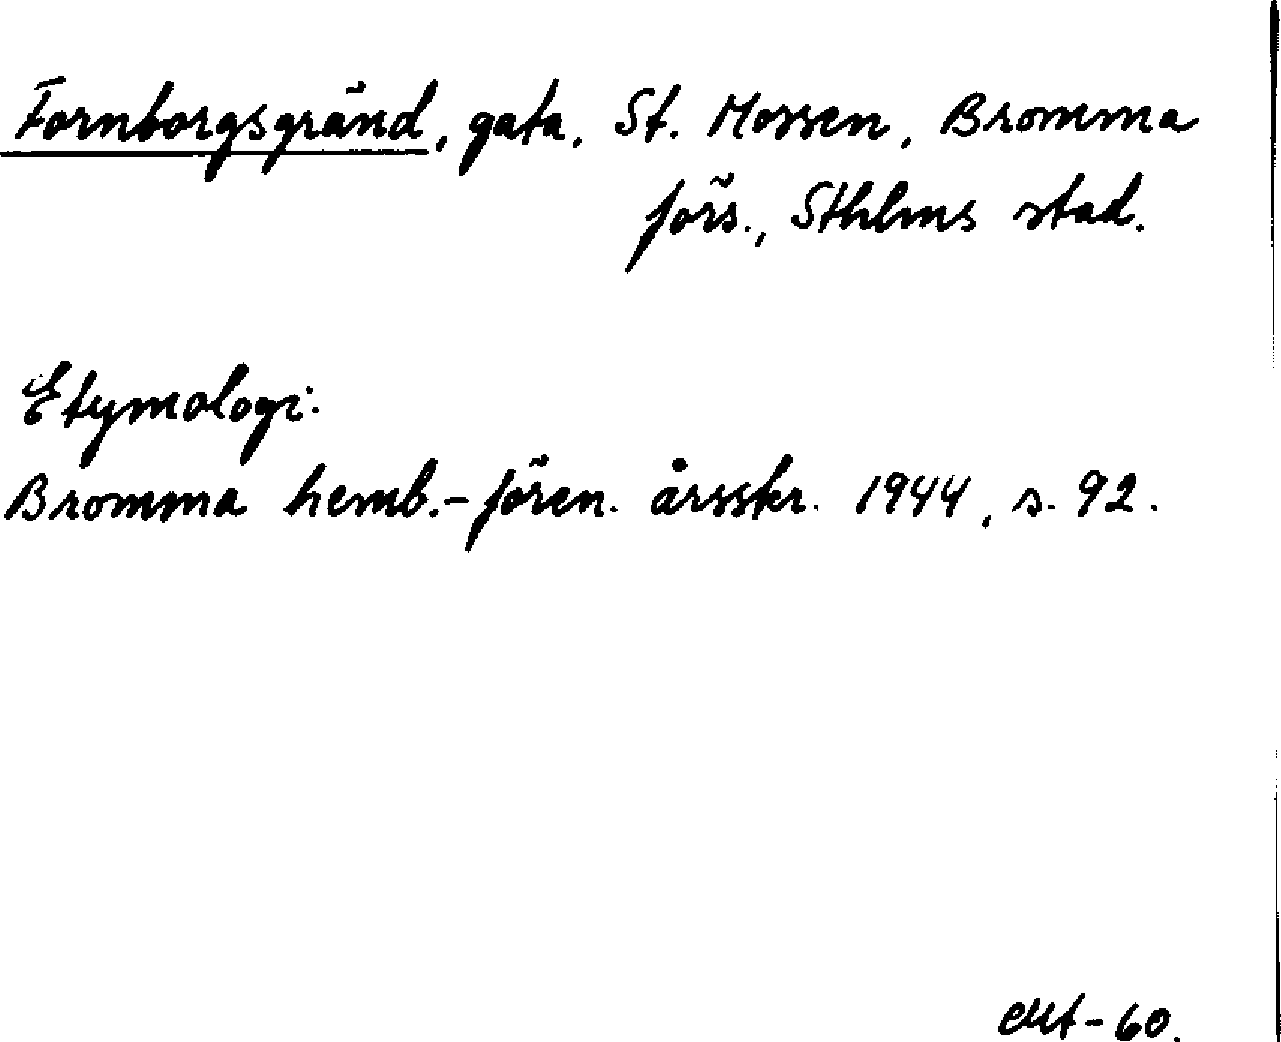 Fornborgsgränd, gata, St. Mossen, Bromma
förs., Sthlms stad.
Etymologi:
Bromma hemb.-fören. årsskr. 1944, s. 92.
-60.